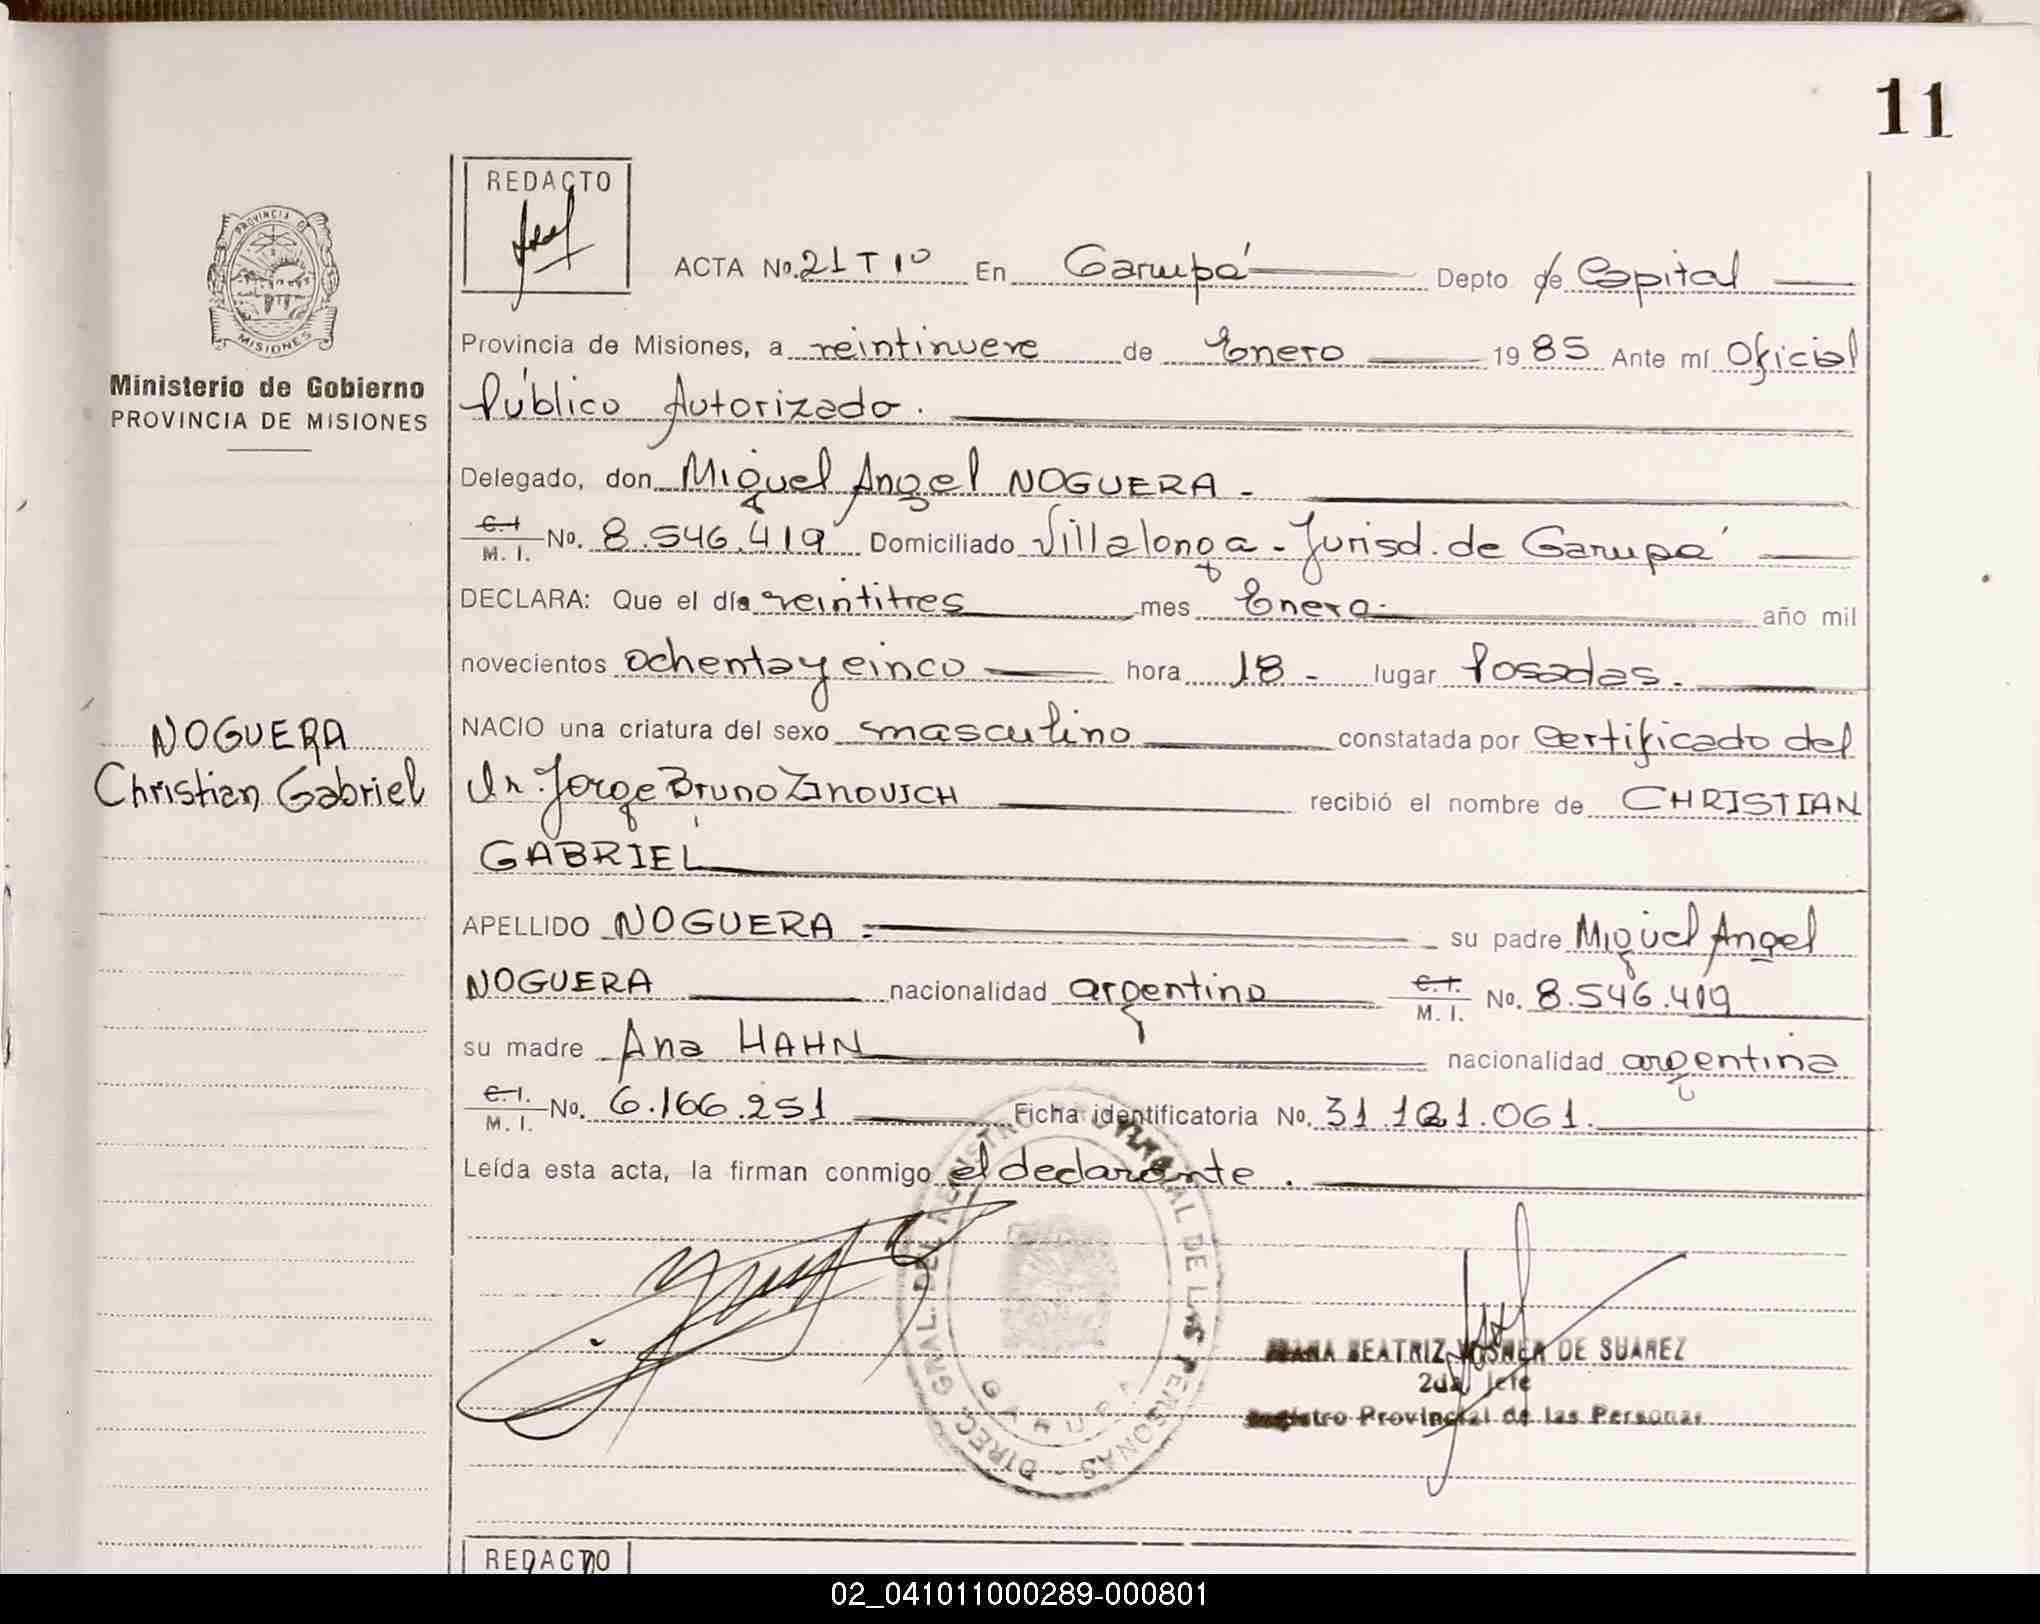 11
REDACTO
PROVINCIA DE
MISIONES
Ministerio de Gobierno
PROVINCIA DE MISIONES
ACTA No. 21 T 1º En Garupá Depto de Capital
Provincia de Misiones, a veintinueve de Enero 1985 Ante mí Oficial
Público Autorizado.
Delegado, don Miguel Angel NOGUERA -
C.I. M. I. No. 8.546.419 Domiciliado Villalonga - Jurisd. de Garupá
DECLARA: Que el día veintitres mes Enero- año mil
novecientos ochenta y cinco hora 18 - lugar Posadas.
NACIO una criatura del sexo masculino constatada por Certificado del
NOGUERA
Christian Gabriel
Dr. Jorge Bruno ZINOVICH recibió el nombre de CHRISTIAN
GABRIEL
APELLIDO NOGUERA su padre Miguel Angel
NOGUERA nacionalidad argentino C.I. M. I. No. 8.546.419
su madre Ana HAHN nacionalidad argentina
C.I. M. I. No. 6.166.251 Ficha identificatoria No. 31.121.061.
Leída esta acta, la firman conmigo el declarante.
DIREC. GRAL. DEL REGISTRO DE LAS PERSONAS
GARUPA
BEATRIZ DE SUAREZ
2da Jefe
Registro Provincial de las Personas
REDACTO
02_041011000289-000801